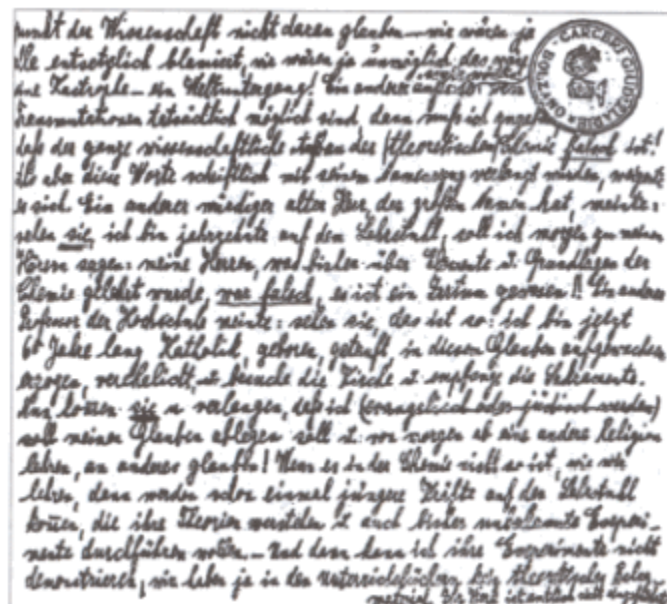 punkt der Wissenschaft nicht daran glauben – wir wären ja
alle entsetzlich blamiert, wir wären ja unmöglich, das
eine Katastrophe – ein Weltuntergang! Ein anderer
Transmutationen tatsächlich möglich sind, dann muß ich
daß der ganze wissenschaftliche der (theoretischen) Chemie falsch ist!
Als aber diese Worte schriftlich mit seinem verlangt wurden,
er sich. Ein anderer alter Herr, der großen Namen hat, meinte:
sehen sie, ich bin jahrzehnte auf dem Lehrstuhl, soll ich morgen zu meinen
Hörern sagen: meine Herren, was bisher über Elemente u. Grundlagen der
Chemie gelehrt wurde, war falsch, es ist ein Irrtum gewesen!! Ein anderer
Professor der Hochschule meinte: sehen sie, das ist so: ich bin jetzt
60 Jahre lang Katholik, geboren, getauft in diesem Glauben aufgewachsen
erzogen, verehelicht, u. besuche die Kirche u. empfange die Sakramente.
Nun kommen sie u. verlangen, daß ich (evangelisch oder jüdisch werden)
soll meinen Glauben ablegen soll u. von morgen ab eine andere Religion
lehren, an anderes glauben! Wenn es in der Chemie nicht so ist, wie wir
lehren, dann werden schon einmal jüngere Kräfte auf den Lehrstuhl
kommen, die ihre Theorien verstehen u. auch bisher unbekannte Experi-
mente durchführen wollen. – Und dann kann ich ihre Experimente nicht
demonstrieren, wir haben ja in den
CARCERI GIUDIZIARIE BOLZANO